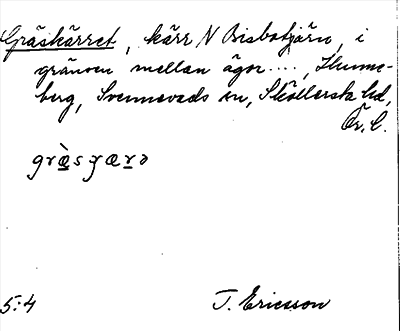 Gräskärret, kärr N Brisbotjärn, i
gränsen mellan ägor...., Hume-
berg, Svennevads sn, Sköllersta hd,
Ör. l.
græ̀sɟærə
5:4 T. Ericsson